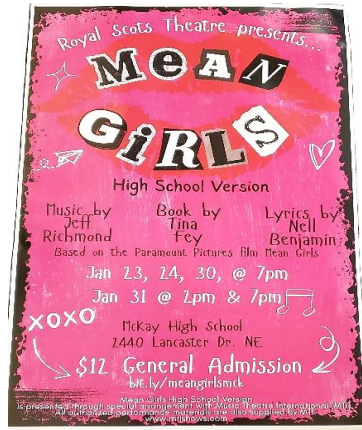 Royal Scots Theatre presents...
MEAN
GiRLS
High School Version
Music by Jeff Richmond
Book by Tina Fey
Lyrics by Nell Benjamin
Based on the Paramount Pictures film Mean Girls
Jan 23, 24, 30, @ 7pm
Jan 31 @ 2pm & 7pm
XOXO
McKay High School
2440 Lancaster Dr. NE
$12 General Admission
bit.ly/meangirlsmck
Mean Girls High School Version
is presented through special arrangement with Music Theatre International (MTI)
All authorized performance materials are also supplied by MTI
www.mtishows.com